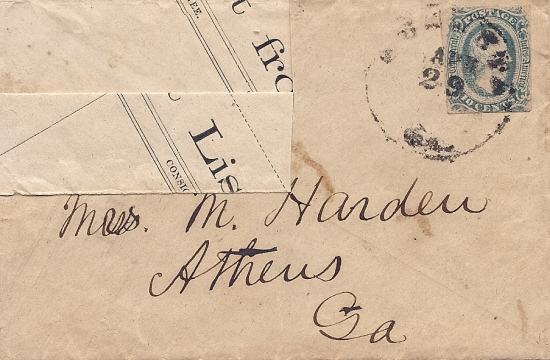 POSTAGE
TEN CENTS
29
Ga.
t fro
Lis
CONSIG
EE.
Mrs. M. Harden
Athens
Ga